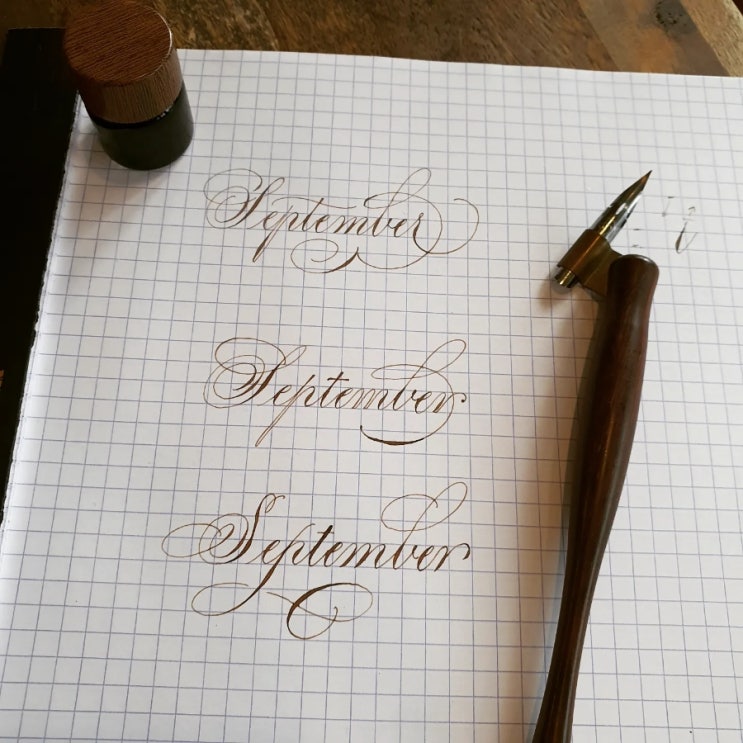 September
September
September